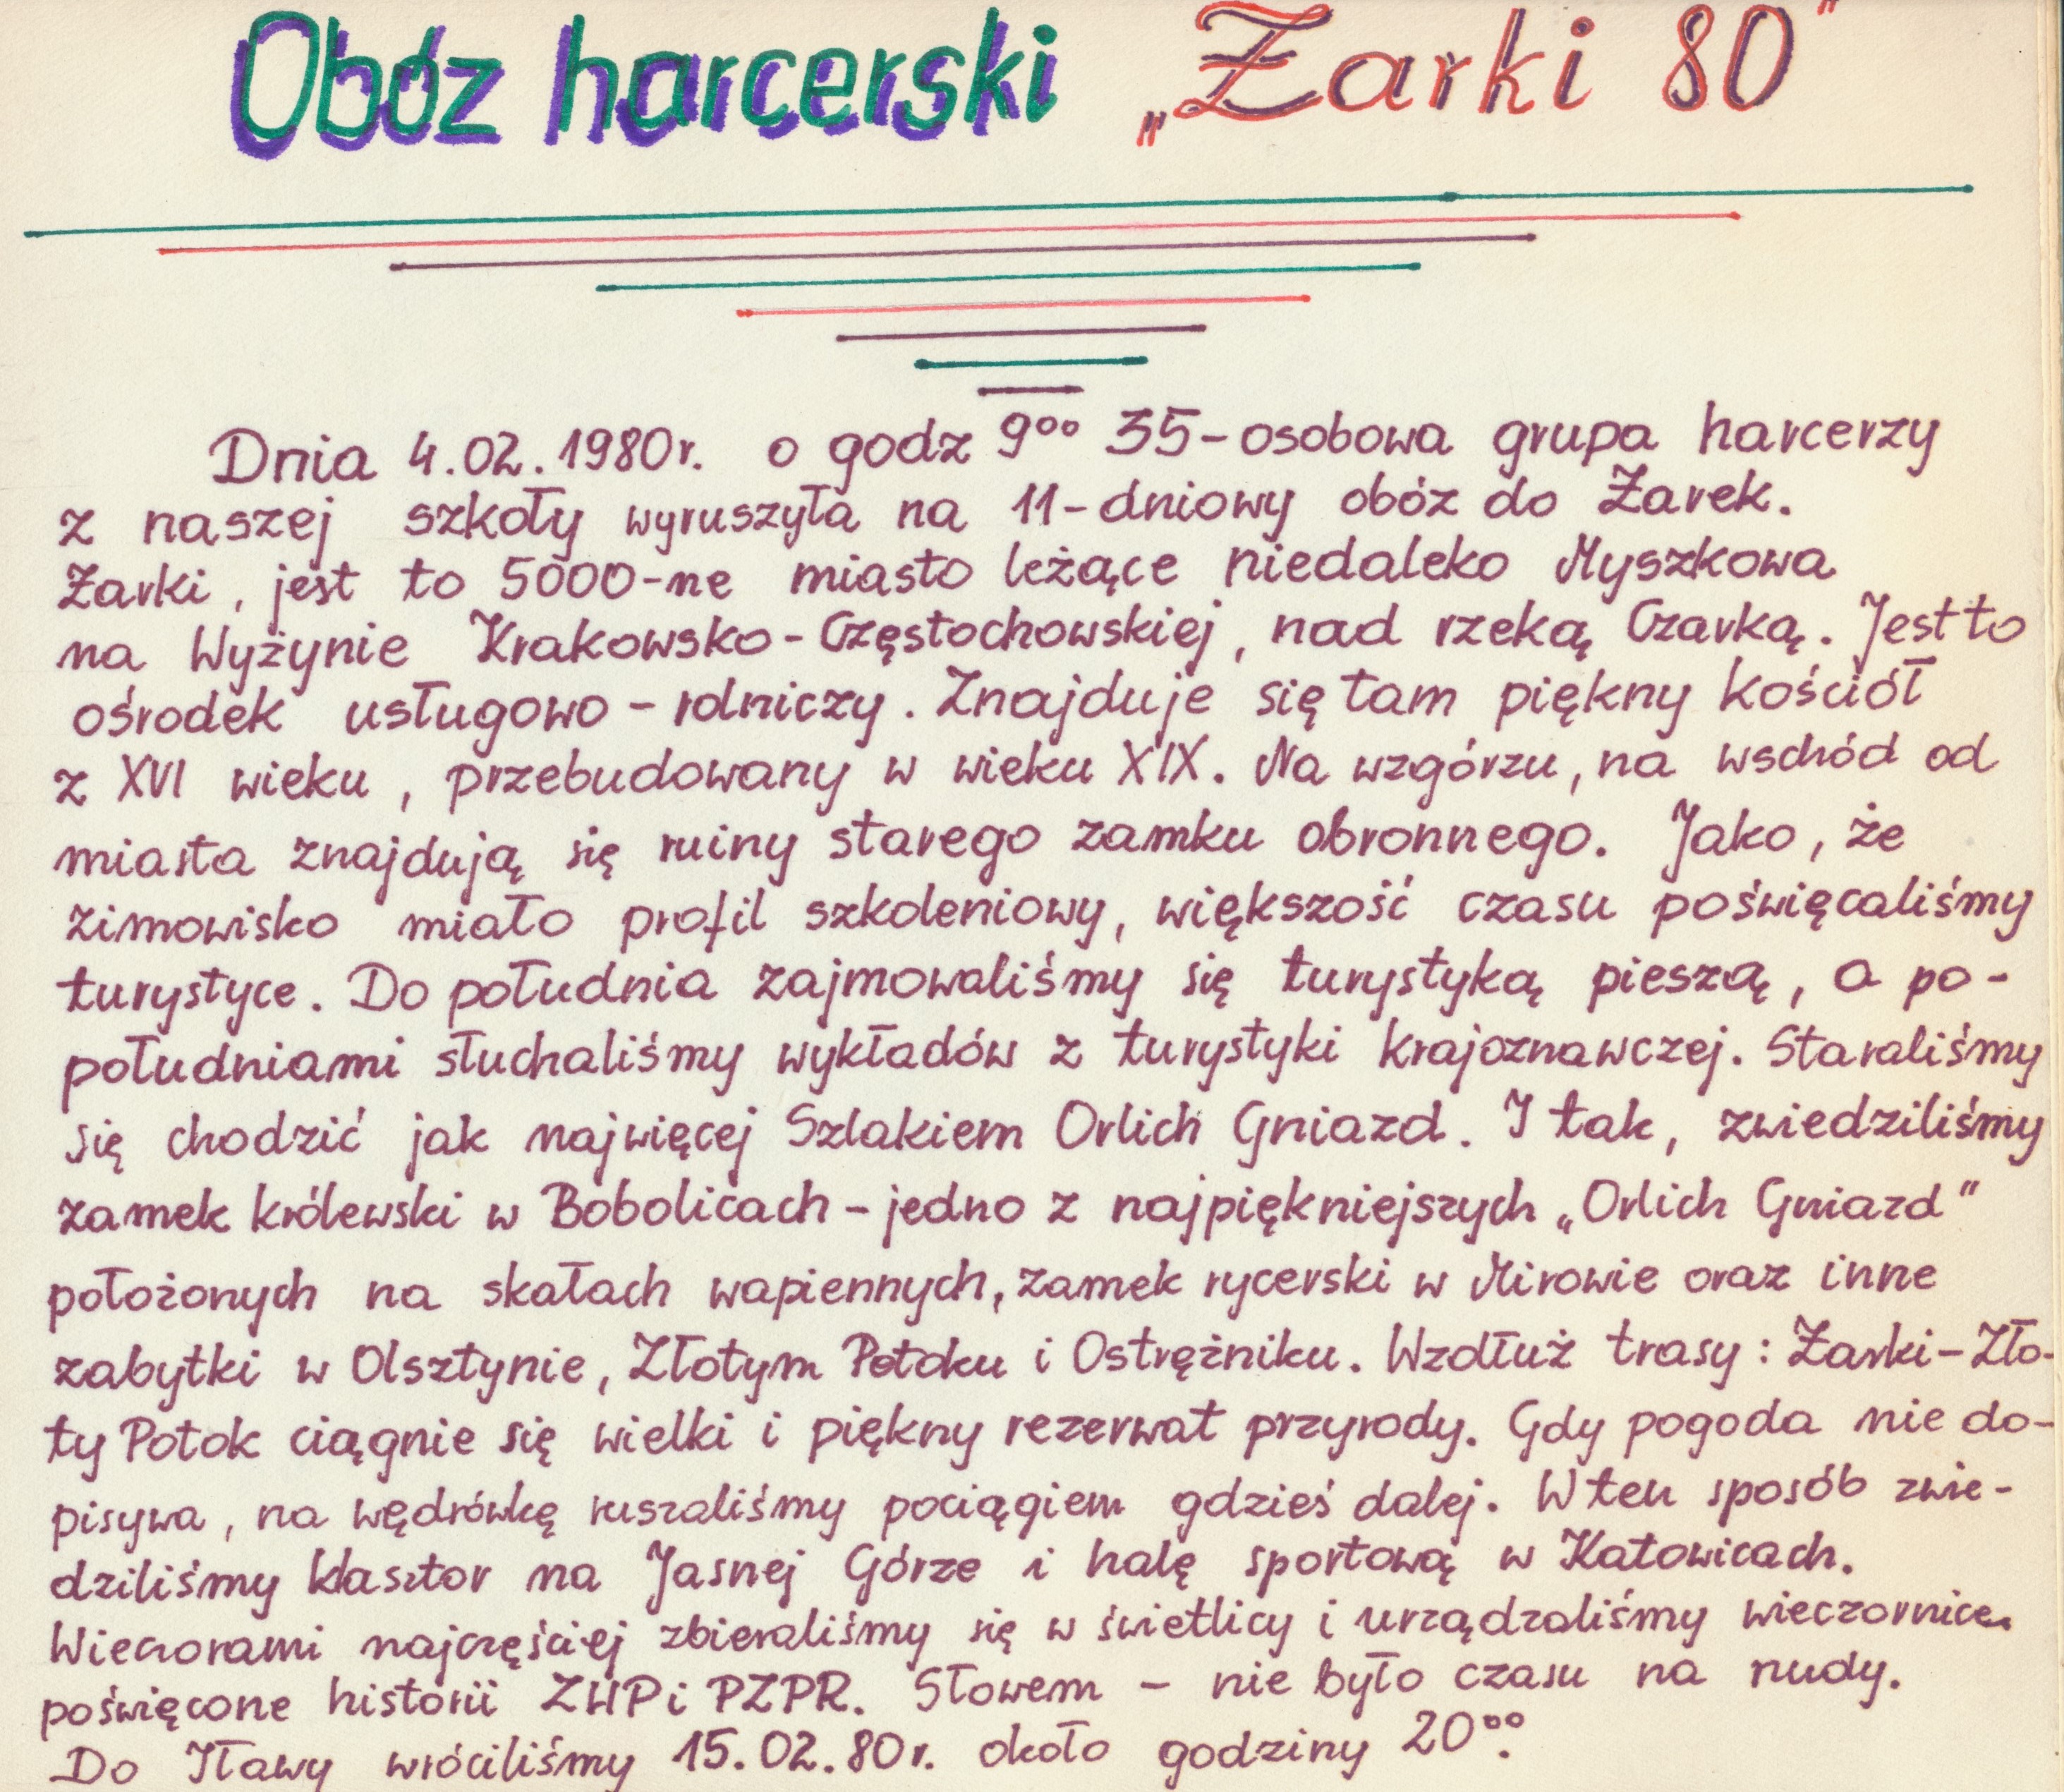 Obóz harcerski „Żarki 80"
Dnia 4.02.1980r. o godz 9⁰⁰ 35-osobowa grupa harcerzy
z naszej szkoły wyruszyła na 11-dniowy obóz do Żarek.
Żarki, jest to 5000-ne miasto leżące niedaleko Myszkowa
na Wyżynie Krakowsko-Częstochowskiej, nad rzeką Czarką. Jest to
ośrodek usługowo-rolniczy. Znajduje się tam piękny kościół
z XVI wieku, przebudowany w wieku XIX. Na wzgórzu, na wschód od
miasta znajdują się ruiny starego zamku obronnego. Jako, że
zimowisko miało profil szkoleniowy, większość czasu poświęcaliśmy
turystyce. Do południa zajmowaliśmy się turystyką pieszą, a po-
południami słuchaliśmy wykładów z turystyki krajoznawczej. Staraliśmy
się chodzić jak najwięcej Szlakiem Orlich Gniazd. I tak, zwiedziliśmy
zamek królewski w Bobolicach - jedno z najpiękniejszych „Orlich Gniazd"
położonych na skałach wapiennych, zamek rycerski w Mirowie oraz inne
zabytki w Olsztynie, Złotym Potoku i Ostrężniku. Wzdłuż trasy: Żarki-Zło-
ty Potok ciągnie się wielki i piękny rezerwat przyrody. Gdy pogoda nie do-
pisywa, na wędrówkę ruszaliśmy pociągiem gdzieś dalej. W ten sposób zwie-
dziliśmy klasztor na Jasnej Górze i halę sportową w Katowicach.
Wieczorami najczęściej zbieraliśmy się w świetlicy i urządzaliśmy wieczornice
poświęcone historii ZHP i PZPR. Słowem - nie było czasu na nudy.
Do Iławy wróciliśmy 15.02.80r. około godziny 20⁰⁰.